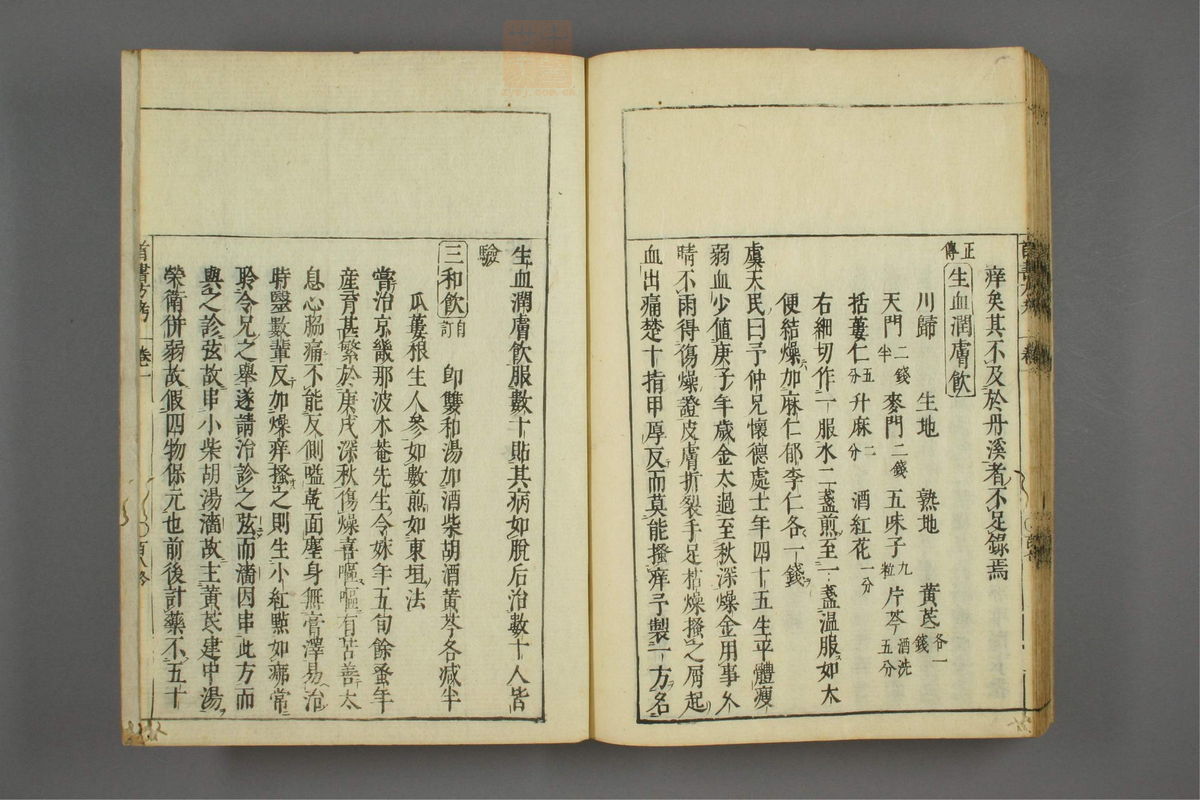 痒矣其不及於丹溪者不足錄焉
正傳 生血潤膚飲
川歸 生地 熟地 黃芪各一錢
天門二錢半 麥門二錢 五味子九粒 片芩酒洗五分
括蔞仁五分 升麻二分 酒紅花一分
右細切作一服水二盞煎至一盞温服如大
便結燥加麻仁郁李仁各一錢
虞天民曰予仲兄懷德處士年四十五生平體瘦
弱血少值庚子年歲金太過至秋深燥金用事久
晴不雨得傷燥證皮膚折裂手足枯燥搔之屑起
血出痛楚十指甲厚反而莫能搔痒予製一方名
生血潤膚飲服數十貼其病如脫后治數十人皆
驗
三和飲 自訂 卽雙和湯加酒柴胡酒黃芩各减半
瓜蔞根生人參如數煎如東垣法
嘗治京畿那波木菴先生令妹年五旬餘蚤年
産育甚繁於庚戌深秋傷燥喜嘔嘔有苦善太
息心脇痛不能反側嗌乾面塵身無膏澤易治
時毉數輩反加燥痒搔之則生小紅㸃如𤺋常
聆令兄之舉遂請治診之弦而濇因串此方而
與之診弦故串小柴胡湯濇故主黃芪建中湯
榮衛併弱故假四物保元也前後計藥不五十